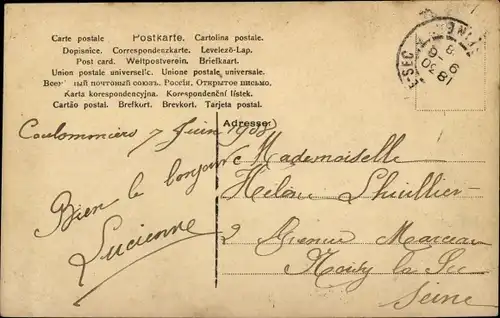 Carte postale Postkarte. Cartolina postale.
Dopisnice. Correspondenzkarte. Levelező-Lap.
Post card. Weltpostverein. Briefkaart.
Union postale universelle. Unione postale universale.
ный почтовый союзъ. Россія. Открытое письмо.
Karta korespondencyjna. Korespondenční lístek.
Cartão postal. Brefkort. Brevkort. Tarjeta postal.
Adresse
Coulommiers 7 Juin 1908
Bien le bonjour
Lucienne
Mademoiselle
Hélène Lhuillier
2 Avenue Marceau
Noisy la Sec
Seine